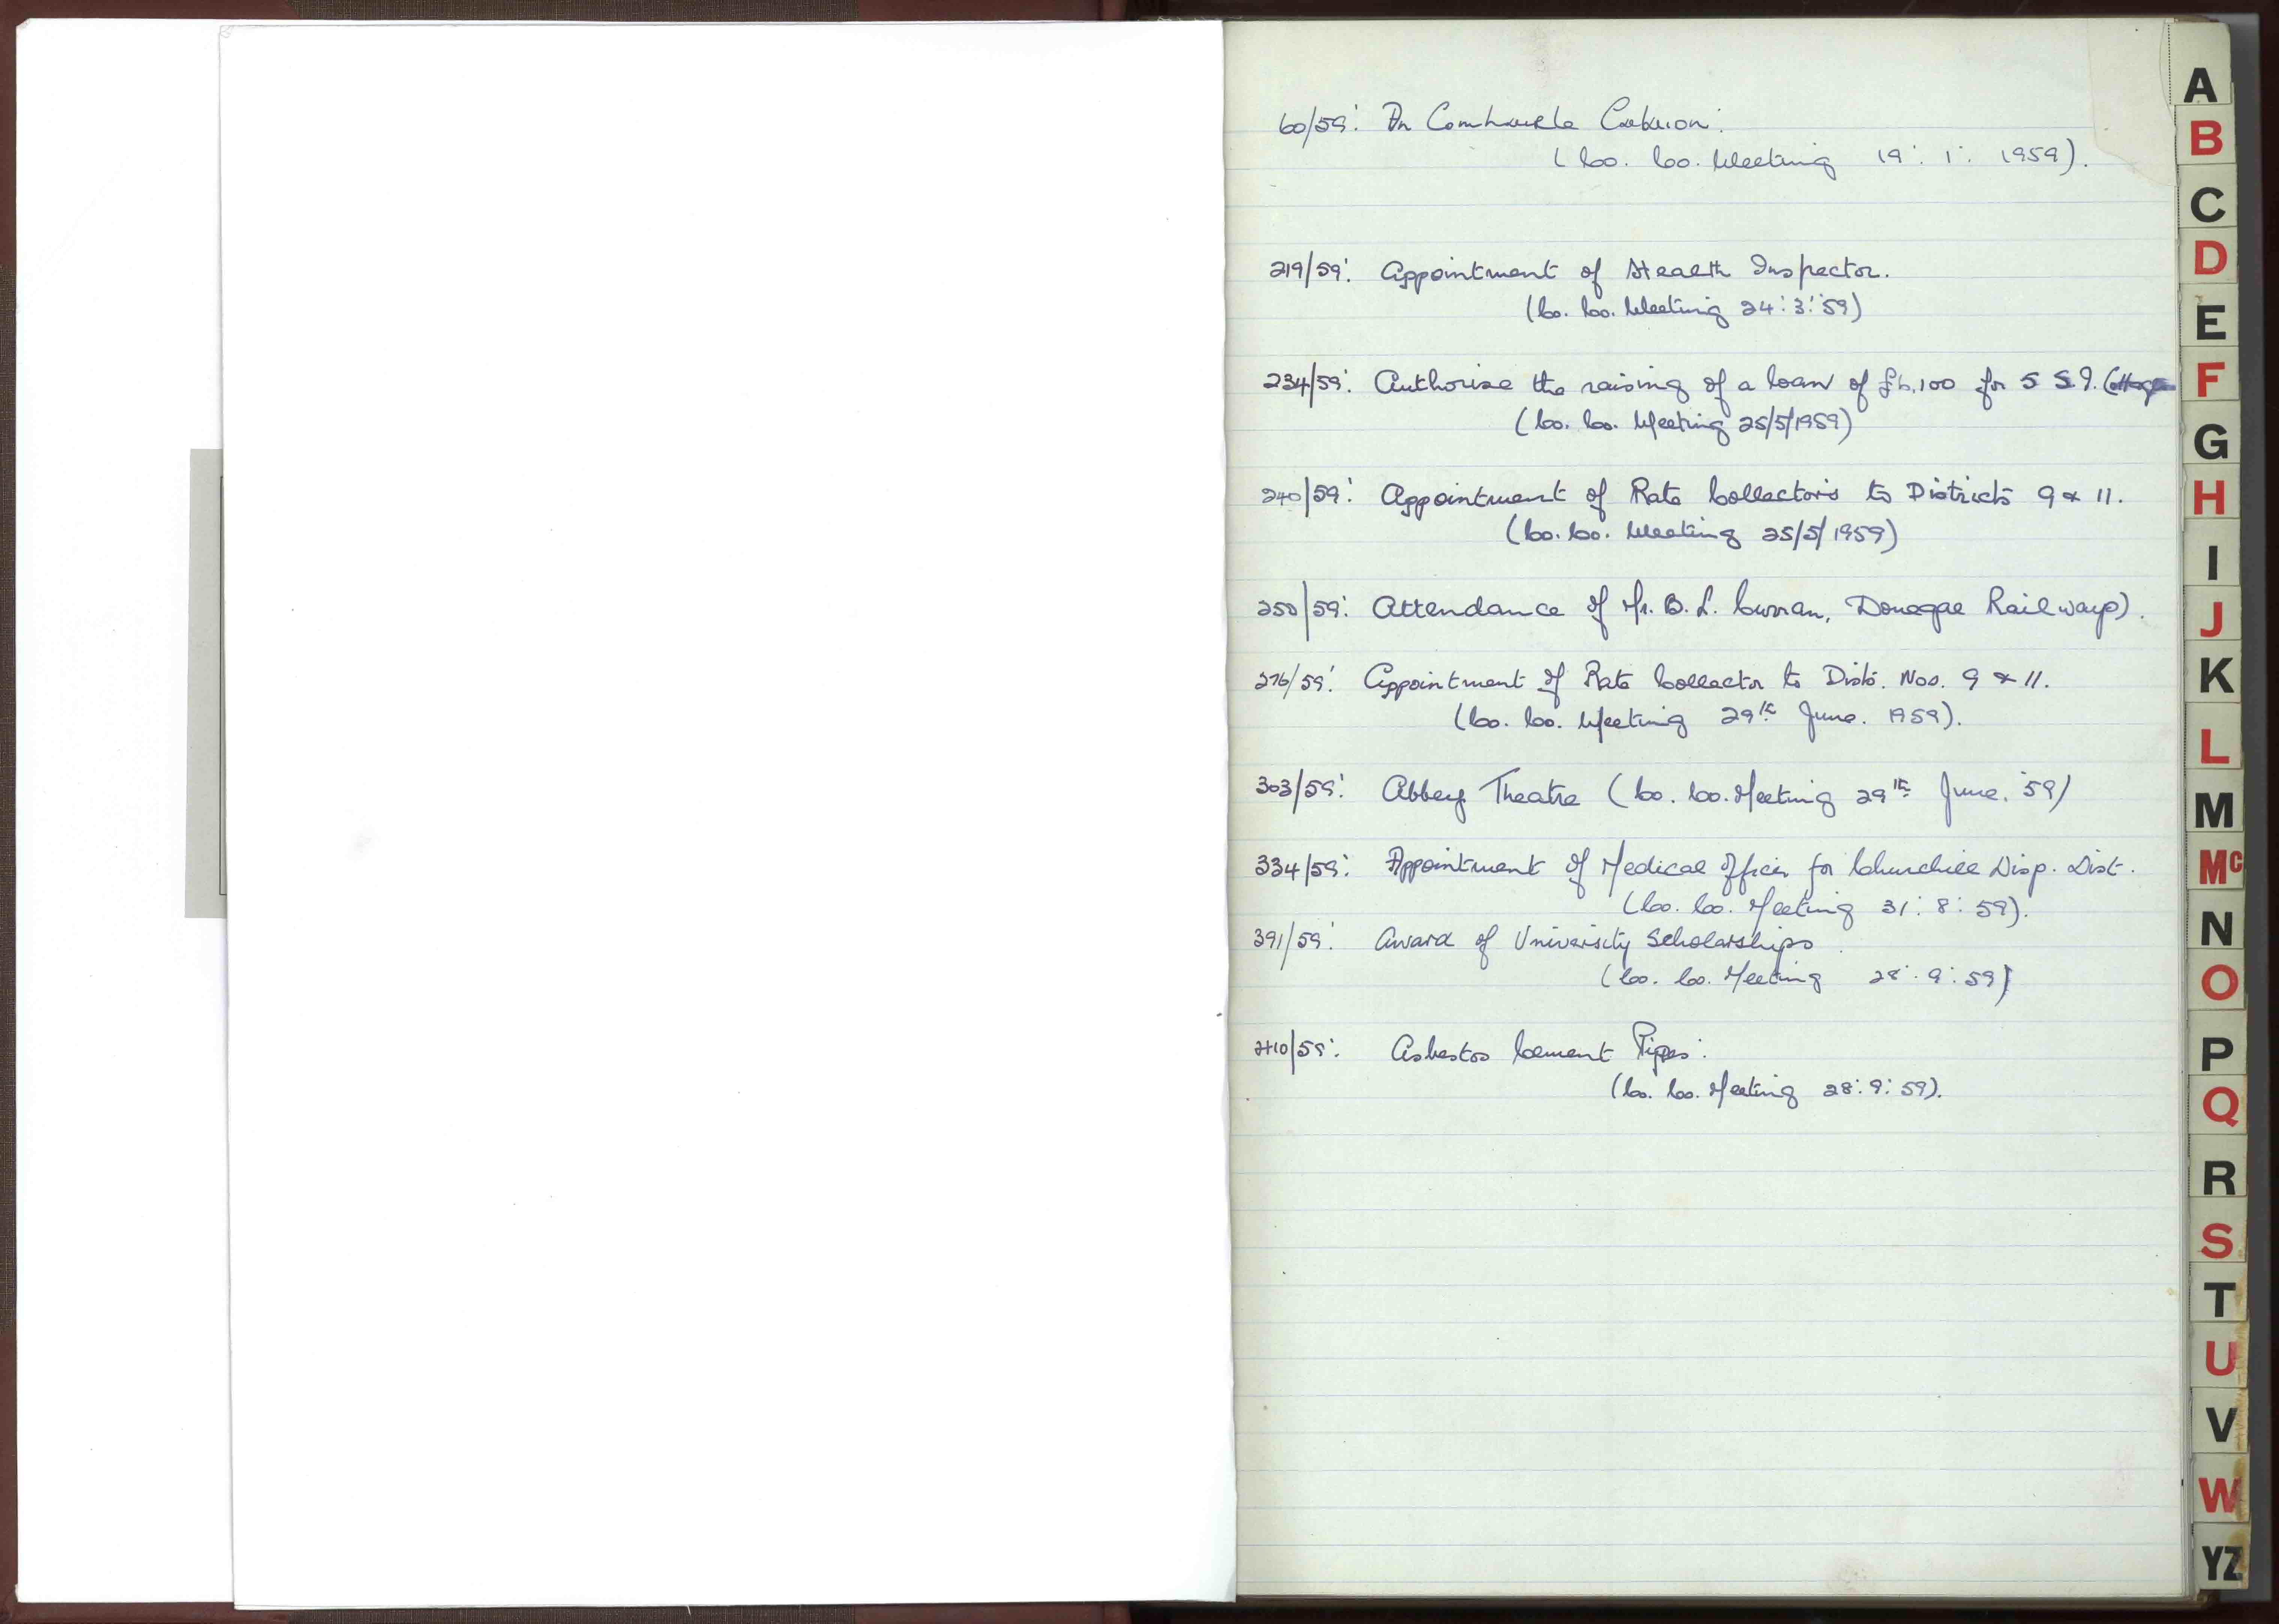 60/59: An Comhairle Ealaion:
(Co. Co. Meeting 19: 1: 1959).
219/59: Appointment of Health Inspector.
(Co. Co. Meeting 24:3:59)
234/59: Authorise the raising of a loan of £6,100 for 5 S.I. Cottages
(Co. Co. Meeting 25/5/1959)
240/59: Appointment of Rate Collectors to Districts 9 & 11.
(Co. Co. Meeting 25/5/1959)
250/59: Attendance of Mr. B. L. Curran, Donegal Railways).
276/59: Appointment of Rate Collector to Dists. Nos. 9 & 11.
(Co. Co. Meeting 29th June. 1959).
303/59: Abbey Theatre (Co. Co. Meeting 29th June. '59)
334/59: Appointment of Medical Officer for Churchill Disp. Dist.
(Co. Co. Meeting 31: 8: 59).
391/59: Award of University Scholarships.
(Co. Co. Meeting 28: 9: 59)
410/59: Asbestos Cement Pipes:
(Co. Co. Meeting 28: 9: 59).
A
B
C
D
E
F
G
H
I
J
K
L
M
Mc
N
O
P
Q
R
S
T
U
V
W
YZ